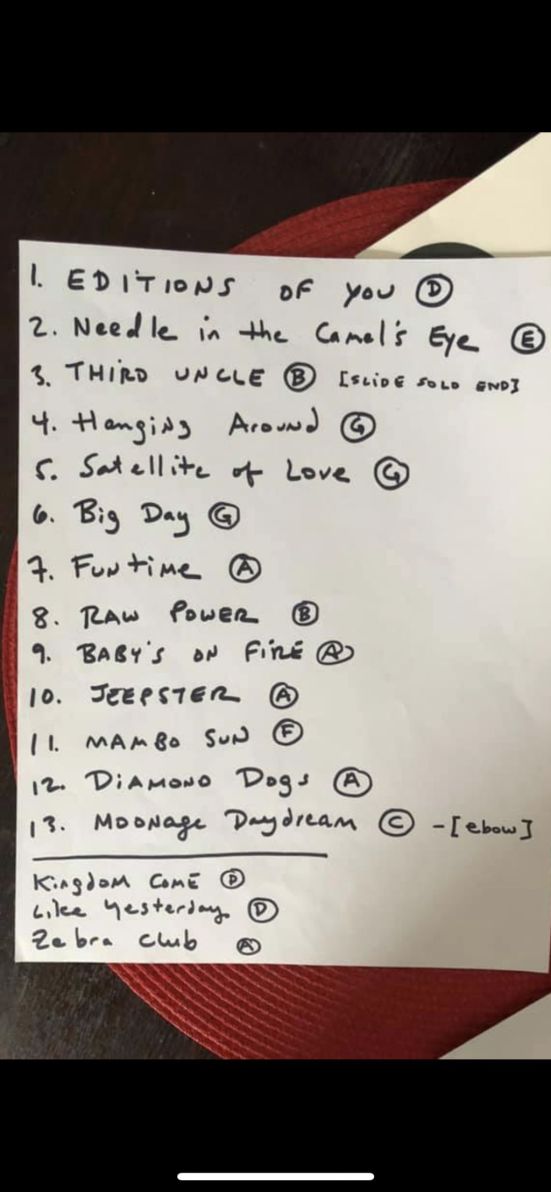 1. EDITIONS OF YOU (D)
2. Needle in the Camel's Eye (E)
3. THIRD UNCLE (B) [SLIDE SOLO END]
4. Hanging Around (G)
5. Satellite of Love (G)
6. Big Day (G)
7. Funtime (A)
8. RAW POWER (B)
9. BABY'S ON FIRE (A)
10. JEEPSTER (A)
11. MAMBO SUN (F)
12. DIAMOND Dogs (A)
13. MOONAGE Daydream (C) - [ebow]
Kingdom COME (D)
Like Yesterday (D)
Zebra club (A)